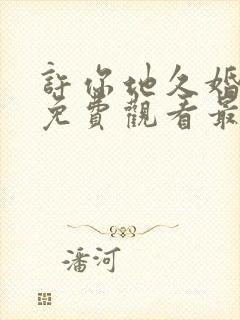 許你地久婚
免費觀看最
潘河